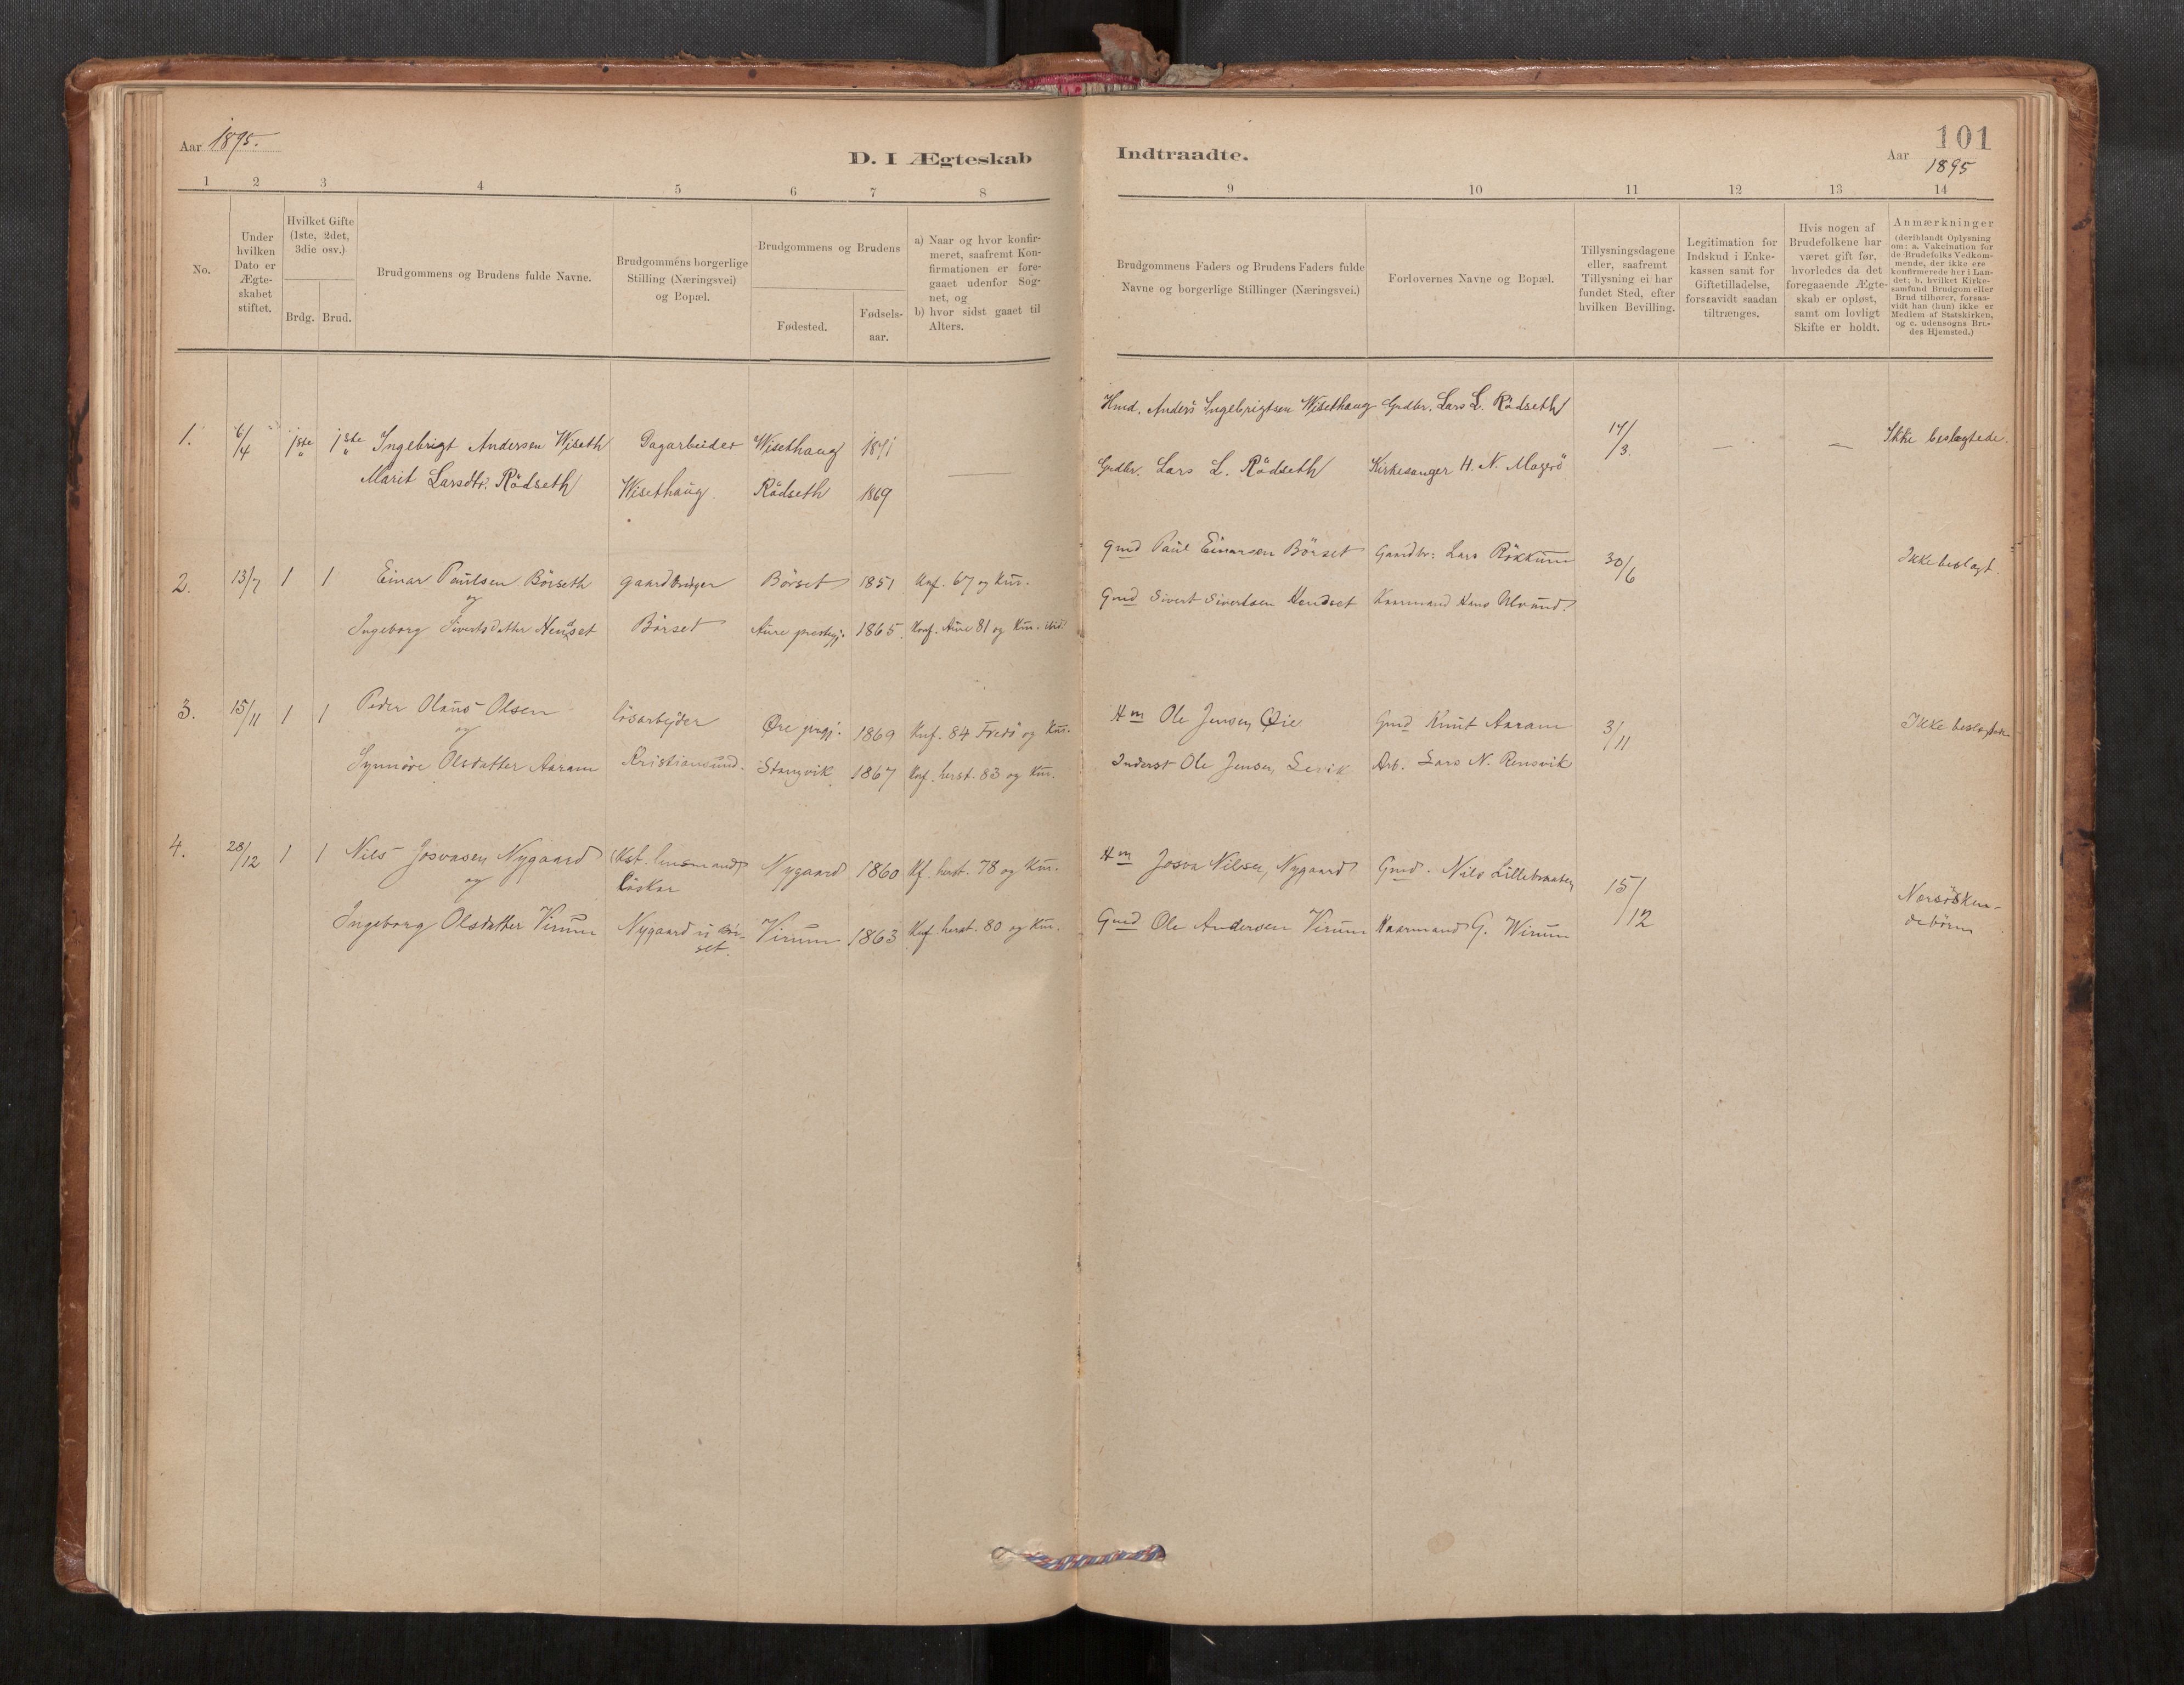 Aar 1895.
D. I Ægteskab
1 2 3 4 5 6 7 8
No.
Under hvilken Dato er Ægte-skabet stiftet.
Hvilket Gifte (1ste, 2det, 3die osv.)
Brdg. Brud.
Brudgommens og Brudens fulde Navne.
Brudgommens borgerlige Stilling (Næringsvei) og Bopæl.
Brudgommens og Brudens
Fødested.
Fødsels-aar.
a) Naar og hvor konfir-
meret, saafremt Kon-
firmationen er fore-
gaaet udenfor Sog-
net, og
b) hvor sidst gaaet til
Alters.
1. 6/4 1ste 1ste Ingebrigt Andersen Wiseth Dagarbeider Wisethaug 1871
Marit Larsdtr. Rödseth Wisethaug. Rödseth 1869
2. 13/7 1 1 Einar Paulsen Börseth gaardbruger Börset 1851 Knf. 67 og Kur.
og
Ingeborg Sivertsdatter Hendset Börset Aure prestegj. 1865. Konf. Aure 81 og Kur. ibid.
3. 15/11 1 1 Peder Olaus Olsen lösarbejder Øre prgj. 1869 Knf. 84 Fredö og Kur.
og
Synnöve Olsdatter Aaram Kristiansund. Stangvik. 1867 Knf. herst. 83 og Kur.
4. 28/12 1 1 Nils Josvasen Nygaard (Kst. lensmand) Nygaard 1860 Kf. herst. 78 og Kur.
og
Ingeborg Olsdatter Virum Nygaard Virum 1863 Knf. herst. 80 og Kur.
101
Indtraadte.
Aar 1895
9 10 11 12 13 14
Brudgommens Faders og Brudens Faders fulde
Navne og borgerlige Stillinger (Næringsvei.)
Forlovernes Navne og Bopæl.
Tillysningsdagene
eller, saafremt
Tillysning ei har
fundet Sted, efter
hvilken Bevilling.
Legitimation for
Indskud i Enke-
kassen samt for
Giftetilladelse,
forsaavidt saadan
tiltrænges.
Hvis nogen af
Brudefolkene har
været gift før,
hvorledes da det
foregaaende Ægte-
skab er opløst,
samt om lovligt
Skifte er holdt.
Anmærkninger
(deriblandt Oplysning
om: a. Vakcination for
de Brudefolks Vedkom-
mende, der ikke ere
konfirmerede her i Lan-
det; b. hvilket Kirke-
samfund Brudgom eller
Brud tilhører, forsaa-
vidt han (hun) ikke er
Medlem af Statskirken,
og c. udensogns Bru-
des Hjemsted.)
Hmd. Anders Ingebrigtsen Wisethaug Grdbr. Lars L. Rödseth
17/3. — — Ikke beslegtede.
Grdbr. Lars L. Rödseth Kirkesanger H. N. Magerö
Gmd Paul Einarsen Börset Gaardbr: Lars Rökkum 30/6 Ikke beslegt.
Gmd Sivert Sivertsen Hendset Kaarmand Hans Ulvund
Hm Ole Jensen Øie Gmd Knut Aaram 3/11
Inderst Ole Jensen, Arb. Lars N. Rensvik
Hm Josva Nilsen, Nygaard Gmd. Nils 15/12
Gmd Ole Andersen Virum Kaarmand G. Wirum